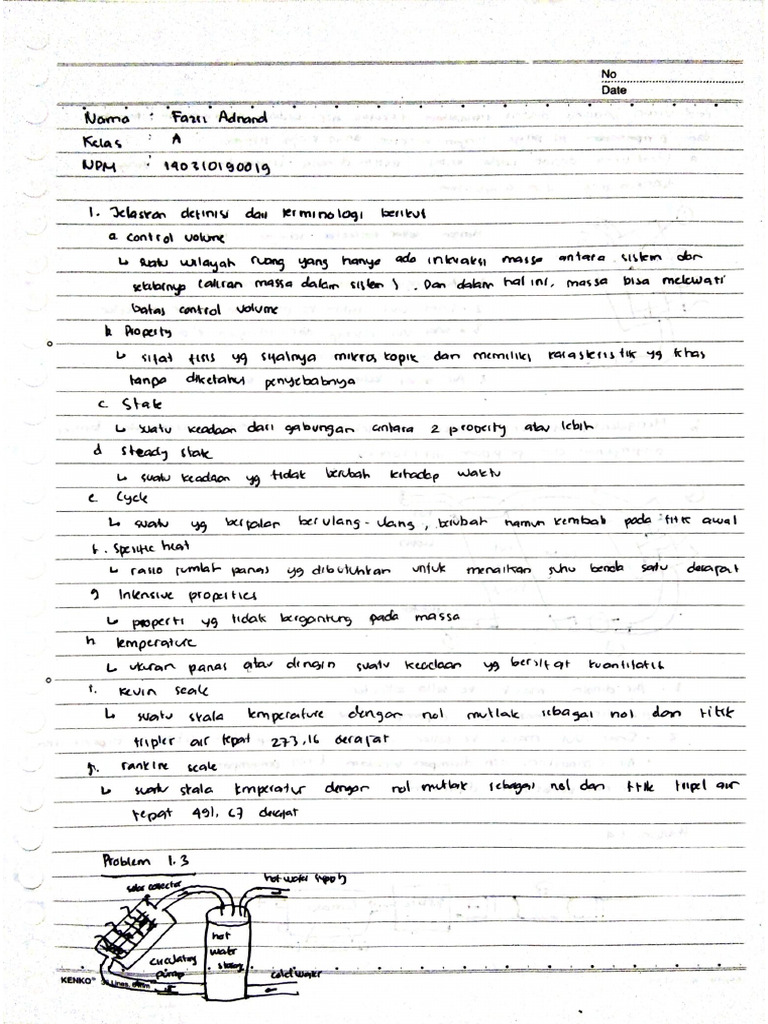 No
Date
Nama : Fazri Adnand
Kelas : A
NPM : 140310190019
1. Jelaskan definisi dari terminologi berikut
a. control volume
↳ suatu wilayah ruang yang hanya ada interaksi massa antara sistem dan
sekitarnya (aliran massa dalam sistem). Dan dalam hal ini, massa bisa melewati
batas control volume
b. Property
↳ sifat fisis yg sifatnya mikroskopik dan memiliki karakteristik yg khas
tanpa diketahui penyebabnya
c. State
↳ suatu keadaan dari gabungan antara 2 property atau lebih
d Steady state
↳ suatu keadaan yg tidak berubah terhadap waktu
e. Cycle
↳ suatu yg berjalan berulang-ulang, berubah namun kembali pada titik awal
f. Specific heat
↳ rasio jumlah panas yg dibutuhkan untuk menaikan suhu benda satu derajat
g Intensive properties
↳ properti yg tidak bergantung pada massa
h temperature
↳ ukuran panas atau dingin suatu keadaan yg bersifat kuantitatif
i. Kevin scale
↳ suatu skala temperature dengan nol mutlak sebagai nol dan titik
tripler air tepat 273,16 derajat
j. rankine scale
↳ suatu skala temperatur dengan nol mutlak sebagai nol dan titik tripel air
tepat 491,67 derajat
Problem 1.3
solar collector
hot water supply
hot
water
storage
circulating
pump
cold water
KENKO® Lines, 6mm